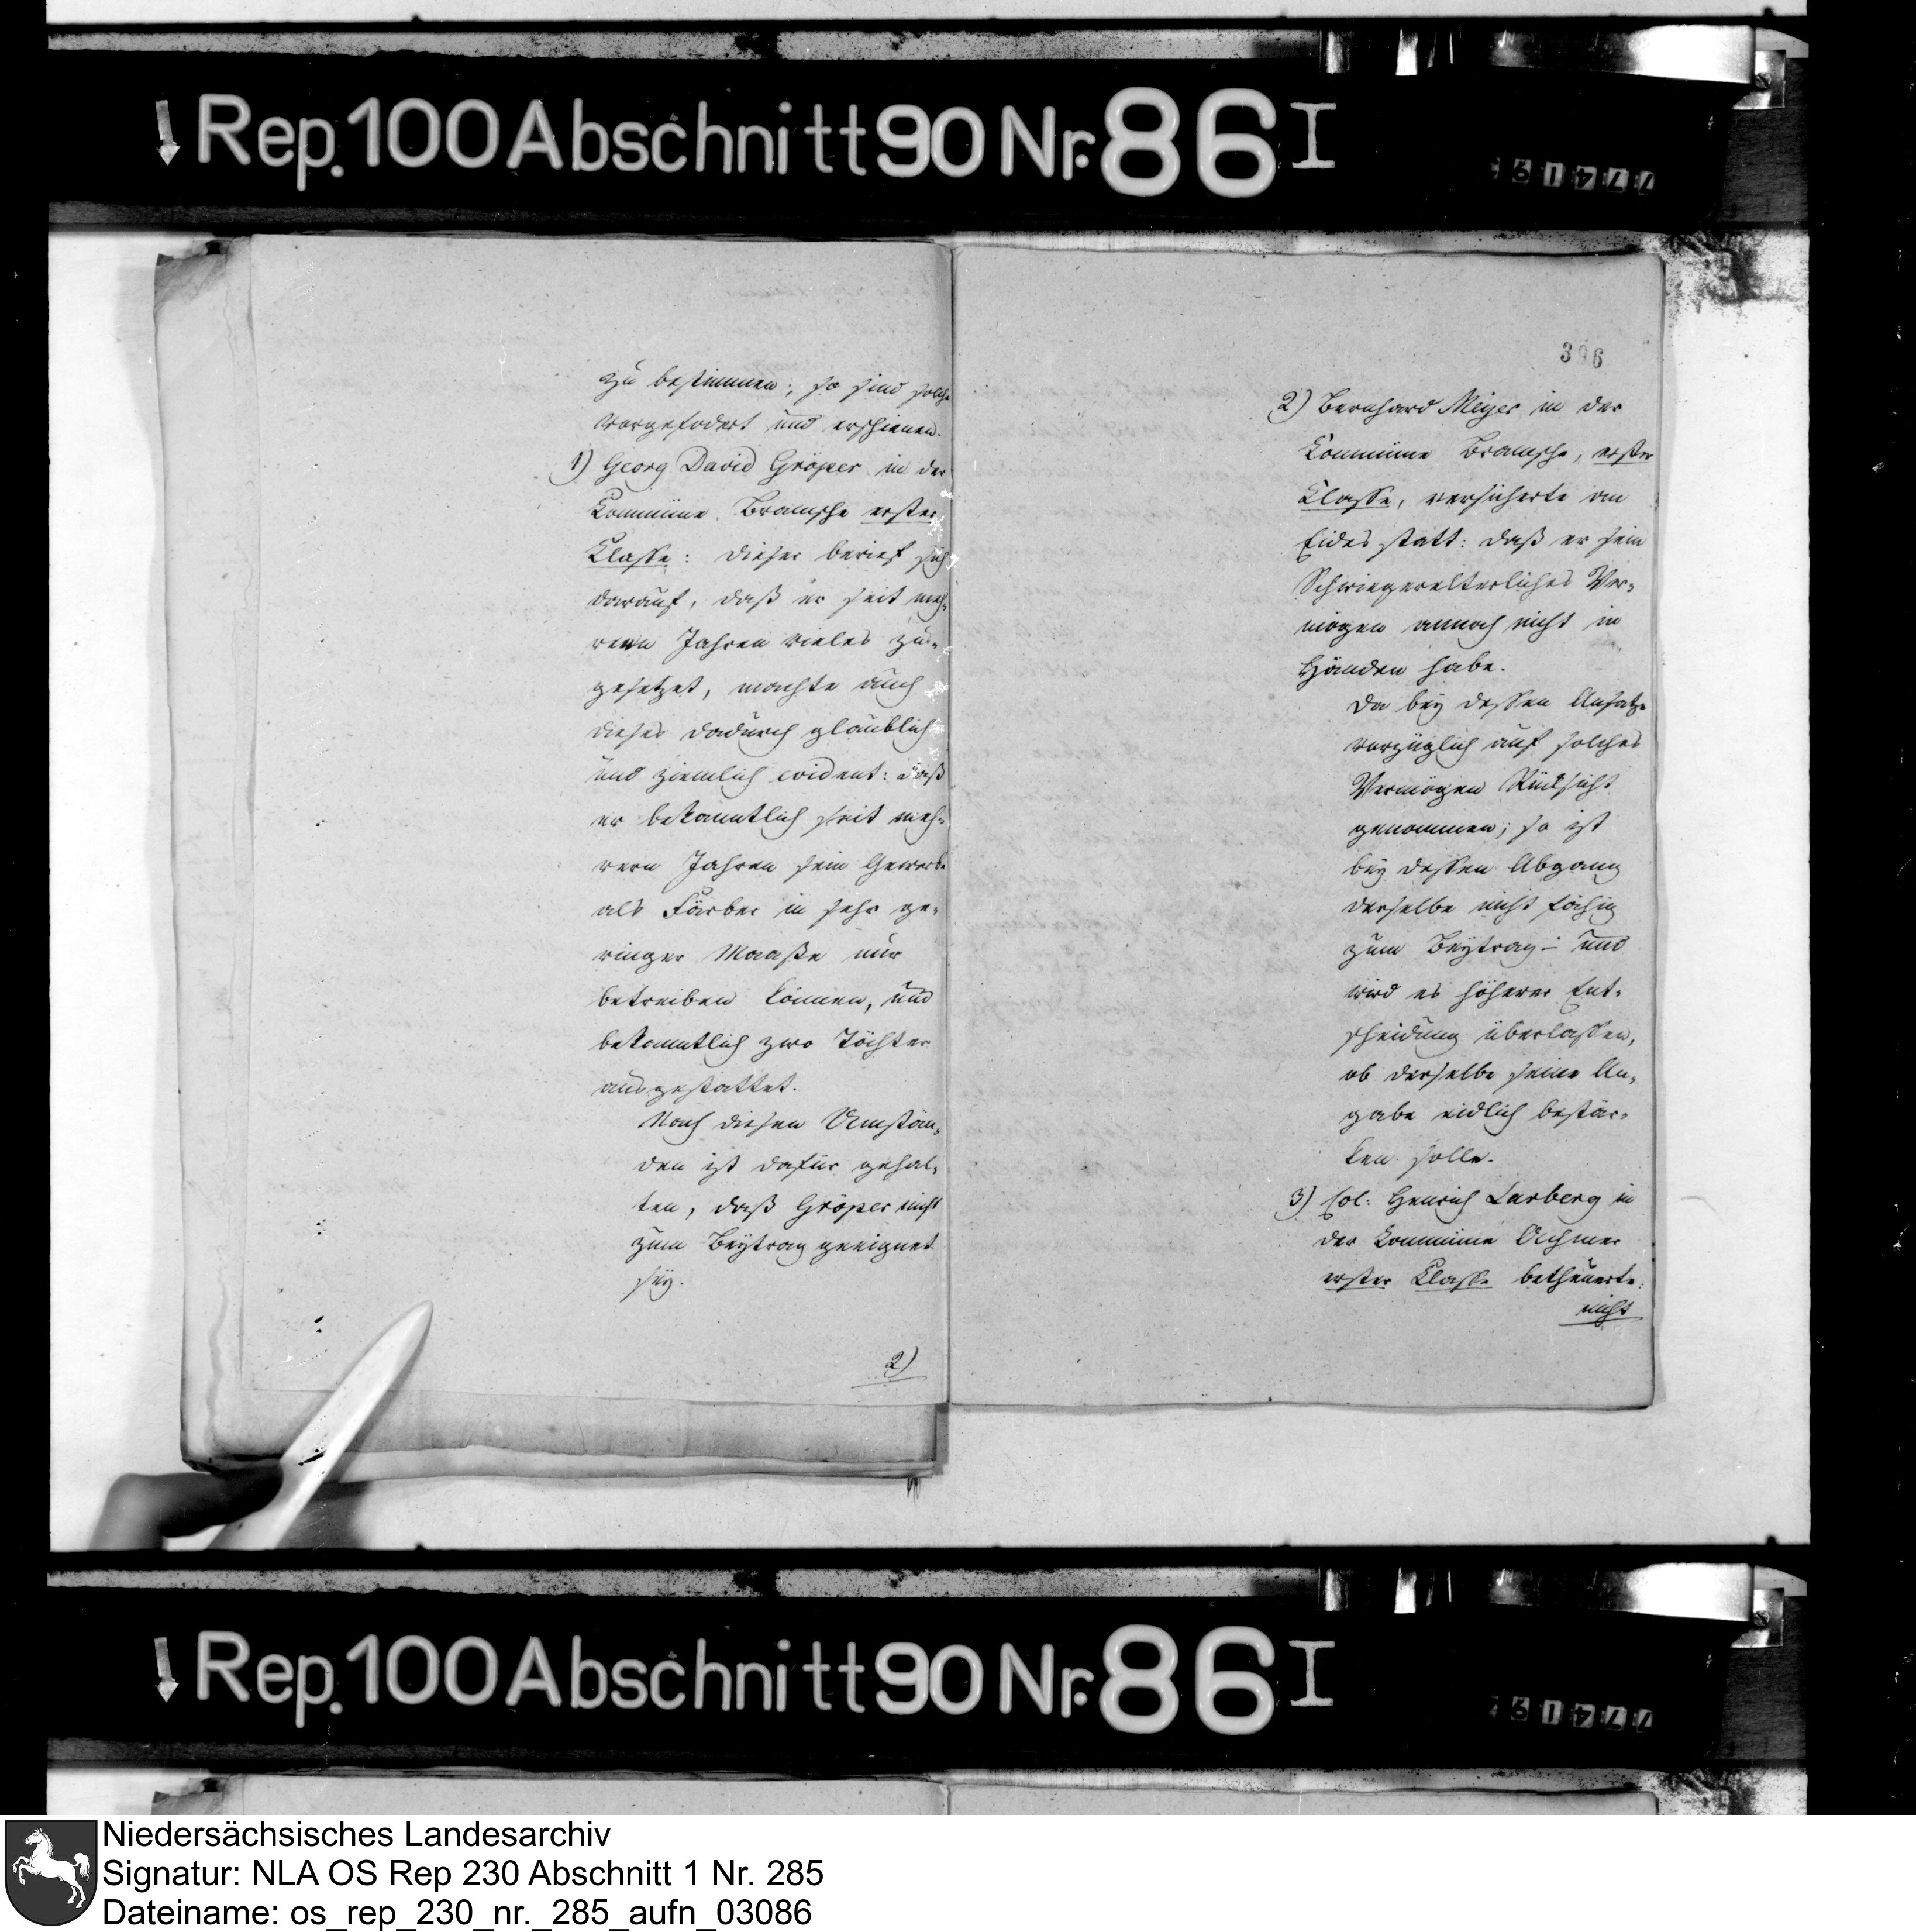 Rep. 100 Abschnitt 90 Nr. 86 I
zu bestimmen; so sind solche
vorgefodert und erschienen.
1) Georg David Gröper in der
Commüne Bramsche erster
Classe: dieser berief sich
darauf, daß er seit meh-
rern Jahren vieles zu-
gesetzet, machte auch
dieses dadurch glaublich
und ziemlich evident: daß
er bekanntlich seit meh-
rern Jahren sein Gewerbe
als Färber in sehr ge-
ringer Maaße nur
betreiben können, und
bekanntlich zwo Töchter
ausgestattet.
Nach diesen Umstän-
den ist dafür gehal-
ten, daß Gröper nicht
zum Beytrag geeignet
sey.
2)
306
2) Bernhard Meyer in der
Commüne Bramsche, erster
Classe, versicherte an
Eides statt: daß er sein
Schwiegerelterliches Ver-
mögen annoch nicht in
Händen habe.
Da bey dessen Ansatze
vorzüglich auf solches
Vermögen Rücksicht
genommen; so ist
bey dessen Abgang
derselbe nicht fähig
zum Beytrag - und
wird es höherer Ent-
scheidung überlassen,
ob derselbe seine An-
gabe eidlich bestär-
ken solle.
3) Col: Henrich Larberg in
der Commüne Achmer
erster Classe betheuerte:
nicht
Rep. 100 Abschnitt 90 Nr. 86 I
Niedersächsisches Landesarchiv
Signatur: NLA OS Rep 230 Abschnitt 1 Nr. 285
Dateiname: os_rep_230_nr._285_aufn_03086